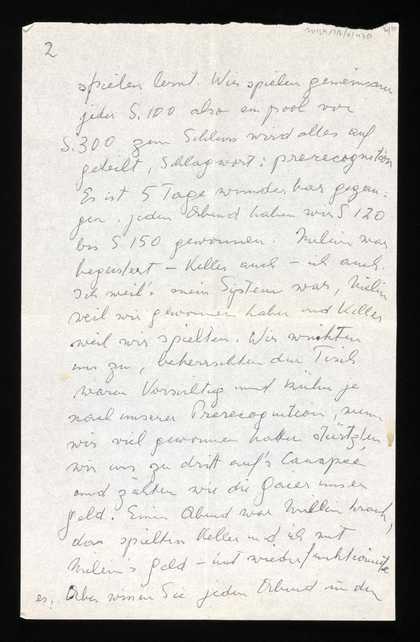 2
spielen lernt. Wir spielen gemeinsam
jeder S. 100 also ein pool von
S. 300 zum Schluss wird alles auf
geteilt, Schlagwort: prerecognition
Es ist 5 Tage wunderbar gegan-
gen. jeden Abend haben wir S 120
bis S 150 gewonnen. war
begeistert – Keller auch – ich auch.
Ich weil's mein System war,
weil wir gewonnen haben und Keller
weil wir spielten. Wir
uns zu, beherrschten den Tisch
waren Vorsichtig und kühn je
nach unserer Prerecognition, wenn
wir viel gewonnen hatten stürzten
wir uns zu dritt auf's Canapée
und zälten wie die unser
geld. Einen Abend war krank,
da spielten Keller und ich mit
geld – und wieder funktionierte
es. Aber wissen Sie jeden Abend in den